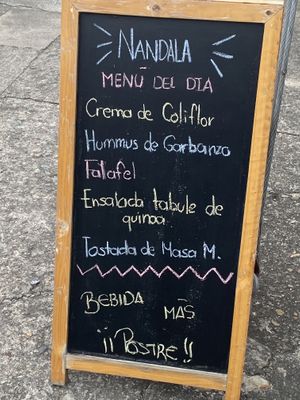 NANDALA
MENÚ DEL DIA
Crema de Coliflor
Hummus de Garbanzo
Falafel
Ensalada tabule de
quinoa.
Tostada de Masa M.
BEBIDA MÁS
¡¡ POSTRE !!